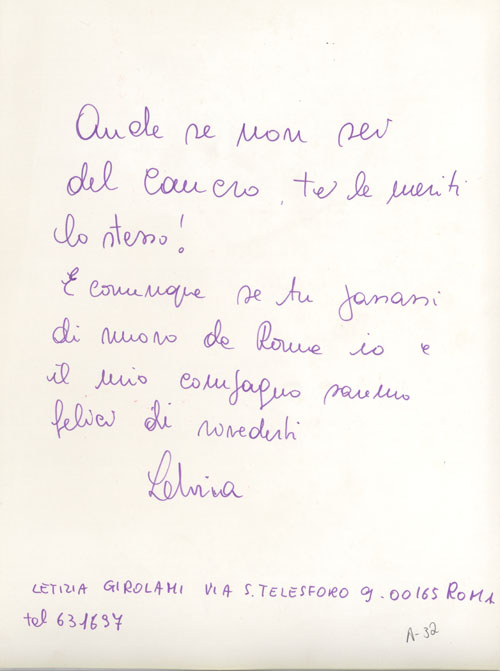 Anche se non sei
del Cancro, te le meriti
lo stesso!
E comunque se tu passassi
di nuovo da Roma io e
il mio compagno saremo
felici di rivederti
Letizia
LETIZIA GIROLAMI VIA S. TELESFORO 9. 00165 ROMA
tel 631697
A-32